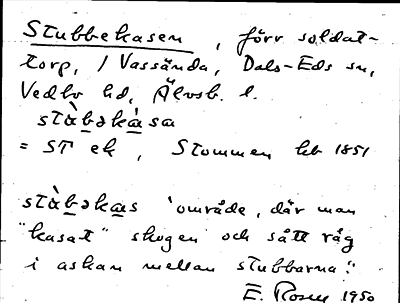 Stubbekasen, förr soldat-
torp, / Vassända, Dals-Eds sn,
Vedbo hd, Älvsb. l.
stàb̲əkà̲sa
= ST ek, Stommen hb 1851
stàb̲əka̲s 'område, där man
"kasat" skogen och sått råg
i askan mellan stubbarna'.
E. Rosen 1950